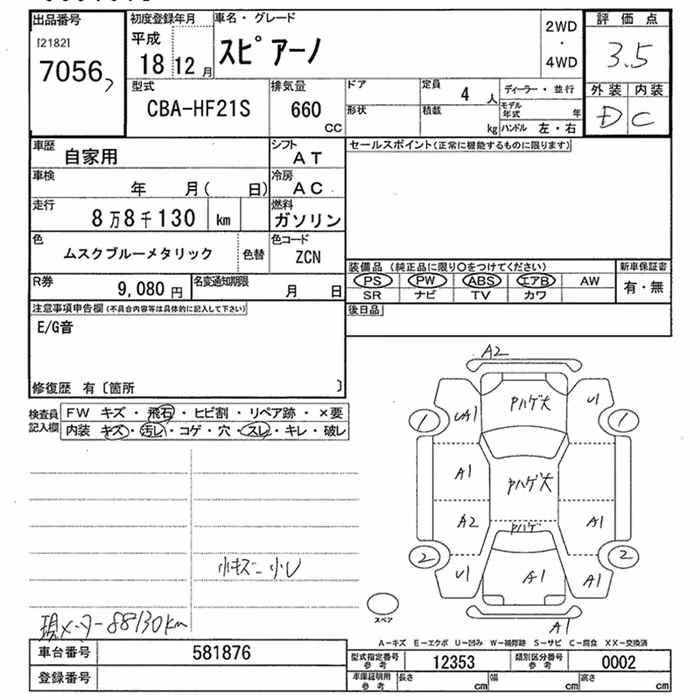 出品番号
[2182]
7056
初度登録年月
平成
18 12 月
車名・グレード
スピアーノ
2WD
・
4WD
評価点
3.5
外装 内装
D C
型式
CBA-HF21S
排気量
660
CC
ドア
形状
定員
4 人
積載
kg
ディーラー・並行
モデル年式 年
ハンドル 左・右
車歴
自家用
シフト
AT
車検
年 月( 日)
冷房
AC
走行
8万8千130 km
燃料
ガソリン
色
ムスクブルーメタリック
色替
色コード
ZCN
R券
9,080 円
名変通知期限
月 日
セールスポイント(正常に機能するものに限ります)
装備品 (純正品に限り○をつけてください)
PS PW ABS エアB AW
SR ナビ TV カワ
新車保証書
有・無
後日品
注意事項申告欄(不具合内容等は具体的に記入して下さい)
E/G音
修復歴 有〔箇所 〕
検査員記入欄
FW キズ・飛石・ヒビ割・リペア跡・×要
内装 キズ・汚レ・コゲ・穴・スレ・キレ・破レ
小キズ 小U
現メーター88130km
A2
UA1 Pハゲ大 U1
1 1
A1 Pハゲ大
A2 Pハゲ A1
2 2
U1 A1 A1
A1
スペア
A-キズ E-エクボ U-凹み W-補修跡 S-サビ C-腐食 XX-交換済
車台番号
581876
登録番号
型式指定番号
参考
12353
類別区分番号
参考
0002
車庫証明用
参考
長さ cm 幅 cm 高さ cm